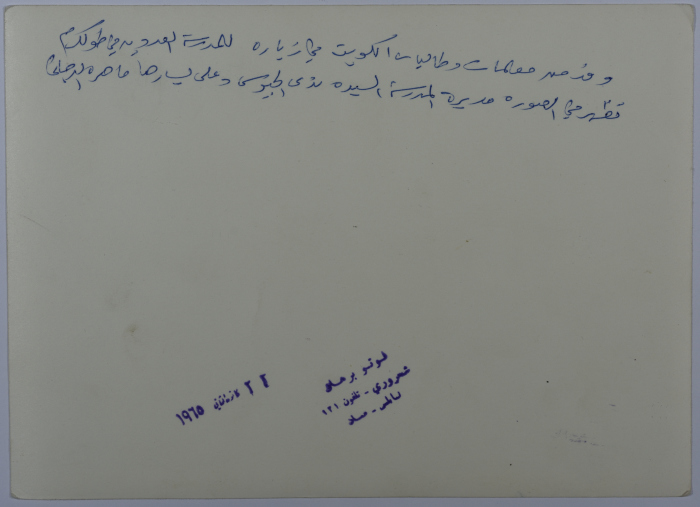 وفد من معلمات وطالبات الكويت في زياره للمدرسة العدويه في طولكرم
تظهر في الصوره مديرة المدرسة السيده ندى الجيوسي وعلى يسارها ماهره
فوتو برهان
شحروري - تلفون ١٢١
نابلس -
٢٢ ١٩٦٥